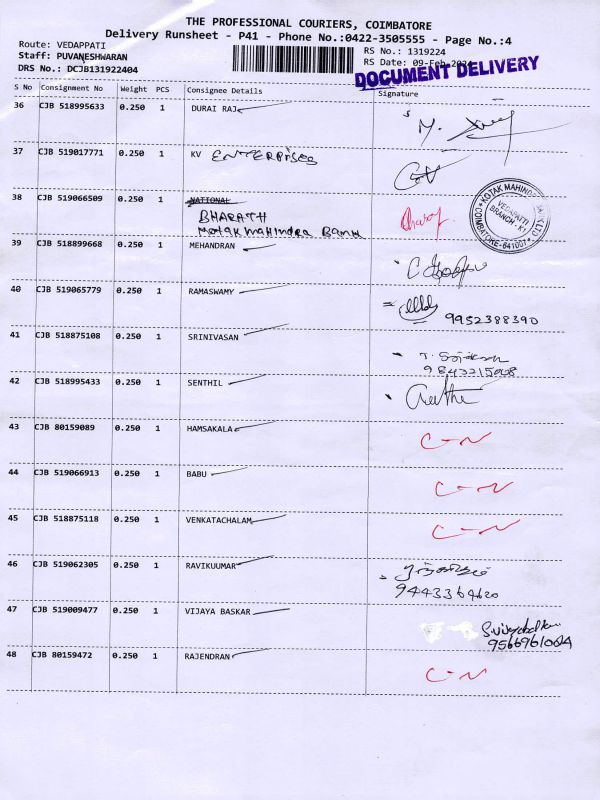 THE PROFESSIONAL COURIERS, COIMBATORE
Delivery Runsheet - P41 - Phone No.:0422-3505555 - Page No.:4
Route: VEDAPPATI
Staff: PUVANESHWARAN
DRS No.: DCJB131922404
RS No.: 1319224
RS Date: 09-Feb-2024
DOCUMENT DELIVERY
S No Consignment No Weight PCS Consignee Details Signature
36 CJB 518995633 0.250 1 DURAI RAJ
37 CJB 519017771 0.250 1 KV ENTERPRISES
38 CJB 519066509 0.250 1 NATIONAL
BHARATH
KOTAK MAHINDRA BANK
KOTAK MAHINDRA BANK LTD
VEDAPATTI
BRANCH - K1
COIMBATORE-641007
39 CJB 518899668 0.250 1 MEHANDRAN
40 CJB 519065779 0.250 1 RAMASWAMY 9952388390
41 CJB 518875108 0.250 1 SRINIVASAN
42 CJB 518995433 0.250 1 SENTHIL
43 CJB 80159089 0.250 1 HAMSAKALA C-N
44 CJB 519066913 0.250 1 BABU C-N
45 CJB 518875118 0.250 1 VENKATACHALAM C-N
46 CJB 519062305 0.250 1 RAVIKUUMAR
9443364620
47 CJB 519009477 0.250 1 VIJAYA BASKAR
48 CJB 80159472 0.250 1 RAJENDRAN C-N